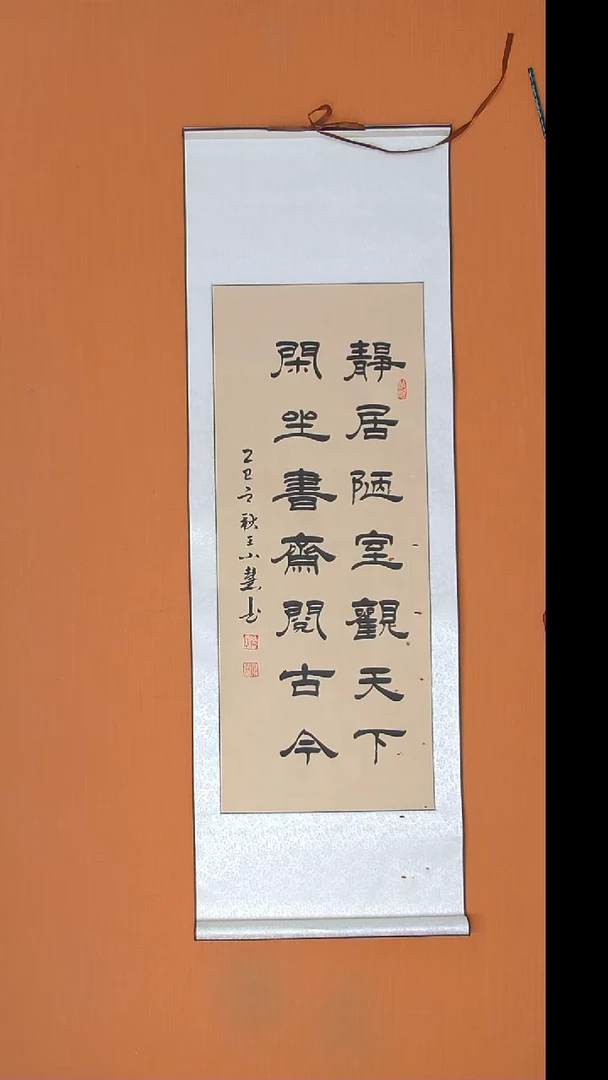 靜居陋室觀天下
閑坐書齋閱古今
乙巳之秋王小慧书